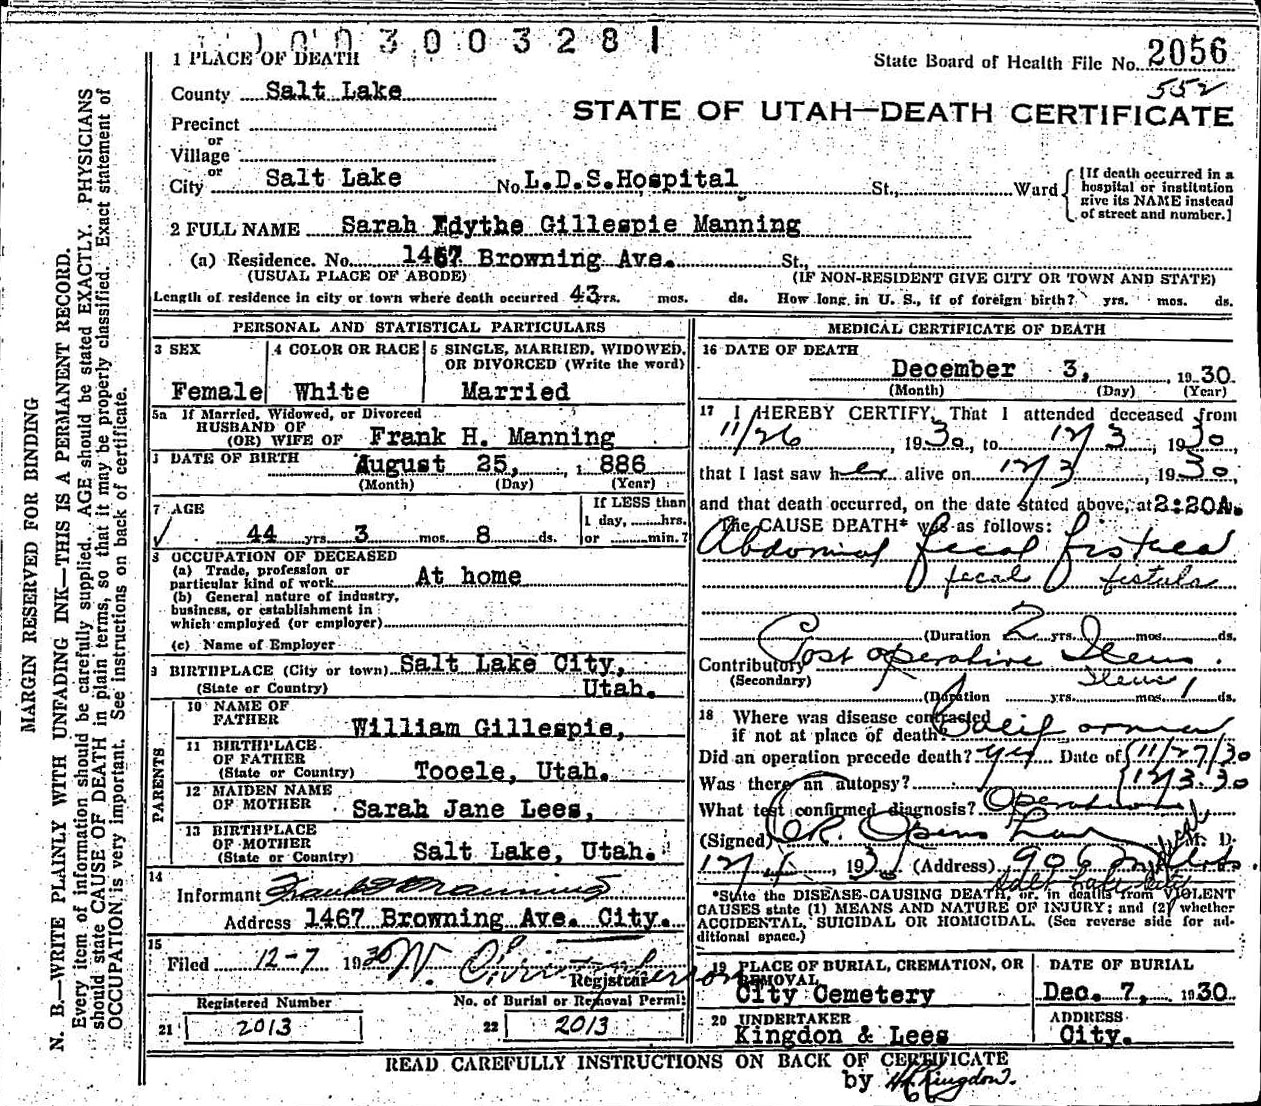 1003003281
1 PLACE OF DEATH
State Board of Health File No. 2056
552
County Salt Lake
STATE OF UTAH—DEATH CERTIFICATE
Precinct
or
Village
or
City Salt Lake No. L.D.S. Hospital St., Ward
[If death occurred in a
hospital or institution
give its NAME instead
of street and number.]
2 FULL NAME Sarah Edythe Gillespie Manning
(a) Residence. No. 1467 Browning Ave. St.,
(USUAL PLACE OF ABODE) (IF NON-RESIDENT GIVE CITY OR TOWN AND STATE)
Length of residence in city or town where death occurred 43 yrs. mos. ds. How long in U. S., if of foreign birth? yrs. mos. ds.
PERSONAL AND STATISTICAL PARTICULARS
3 SEX 4 COLOR OR RACE 5 SINGLE, MARRIED, WIDOWED,
OR DIVORCED (Write the word)
Female White Married
5a If Married, Widowed, or Divorced
HUSBAND OF
(OR) WIFE OF Frank H. Manning
DATE OF BIRTH August 25, 1886
(Month) (Day) (Year)
7 AGE If LESS than
1 day, hrs.
44 yrs. 3 mos. 8 ds. or min.?
8 OCCUPATION OF DECEASED
(a) Trade, profession or
particular kind of work At home
(b) General nature of industry,
business, or establishment in
which employed (or employer)
(c) Name of Employer
9 BIRTHPLACE (City or town) Salt Lake City,
(State or Country) Utah.
PARENTS
10 NAME OF
FATHER William Gillespie,
11 BIRTHPLACE
OF FATHER
(State or Country) Tooele, Utah.
12 MAIDEN NAME
OF MOTHER Sarah Jane Lees,
13 BIRTHPLACE
OF MOTHER
(State or Country) Salt Lake, Utah.
14
Informant Frank H Manning
Address 1467 Browning Ave. City.
15
Filed 12-7 1930 W. Christopherson
Registrar
Registered Number No. of Burial or Removal Permit
21 2013 22 2013
MEDICAL CERTIFICATE OF DEATH
16 DATE OF DEATH
December 3, 1930
(Month) (Day) (Year)
17 I HEREBY CERTIFY, That I attended deceased from
11/26 1930, to 12/3, 1930
that I last saw her alive on 12/3, 1930
and that death occurred, on the date stated above, at 2:20A.
The CAUSE DEATH* was as follows:
Abdominal fecal fistula
fecal fistula
(Duration 2 yrs. mos. ds.
Contributory Post operative Ileus.
(Secondary) Ileus
(Duration yrs. mos. 1 ds.
18 Where was disease contracted
if not at place of death? California
Did an operation precede death? yes Date of 11/27/30
Was there an autopsy? 12/3.30
What test confirmed diagnosis? Operation
(Signed) M. D.
193 (Address) 906
Salt Lake City
*State the DISEASE-CAUSING DEATH, or, in deaths from VIOLENT
CAUSES state (1) MEANS AND NATURE OF INJURY; and (2) whether
ACCIDENTAL, SUICIDAL OR HOMICIDAL. (See reverse side for ad-
ditional space.)
19 PLACE OF BURIAL, CREMATION, OR
REMOVAL
City Cemetery
DATE OF BURIAL
Dec. 7, 1930
20 UNDERTAKER
Kingdon & Lees
ADDRESS
City.
READ CAREFULLY INSTRUCTIONS ON BACK OF CERTIFICATE
by Kingdon.
MARGIN RESERVED FOR BINDING
N. B.—WRITE PLAINLY WITH UNFADING INK—THIS IS A PERMANENT RECORD.
Every item of information should be carefully supplied. AGE should be stated EXACTLY. PHYSICIANS
should state CAUSE OF DEATH in plain terms, so that it may be properly classified. Exact statement of
OCCUPATION is very important. See instructions on back of certificate.